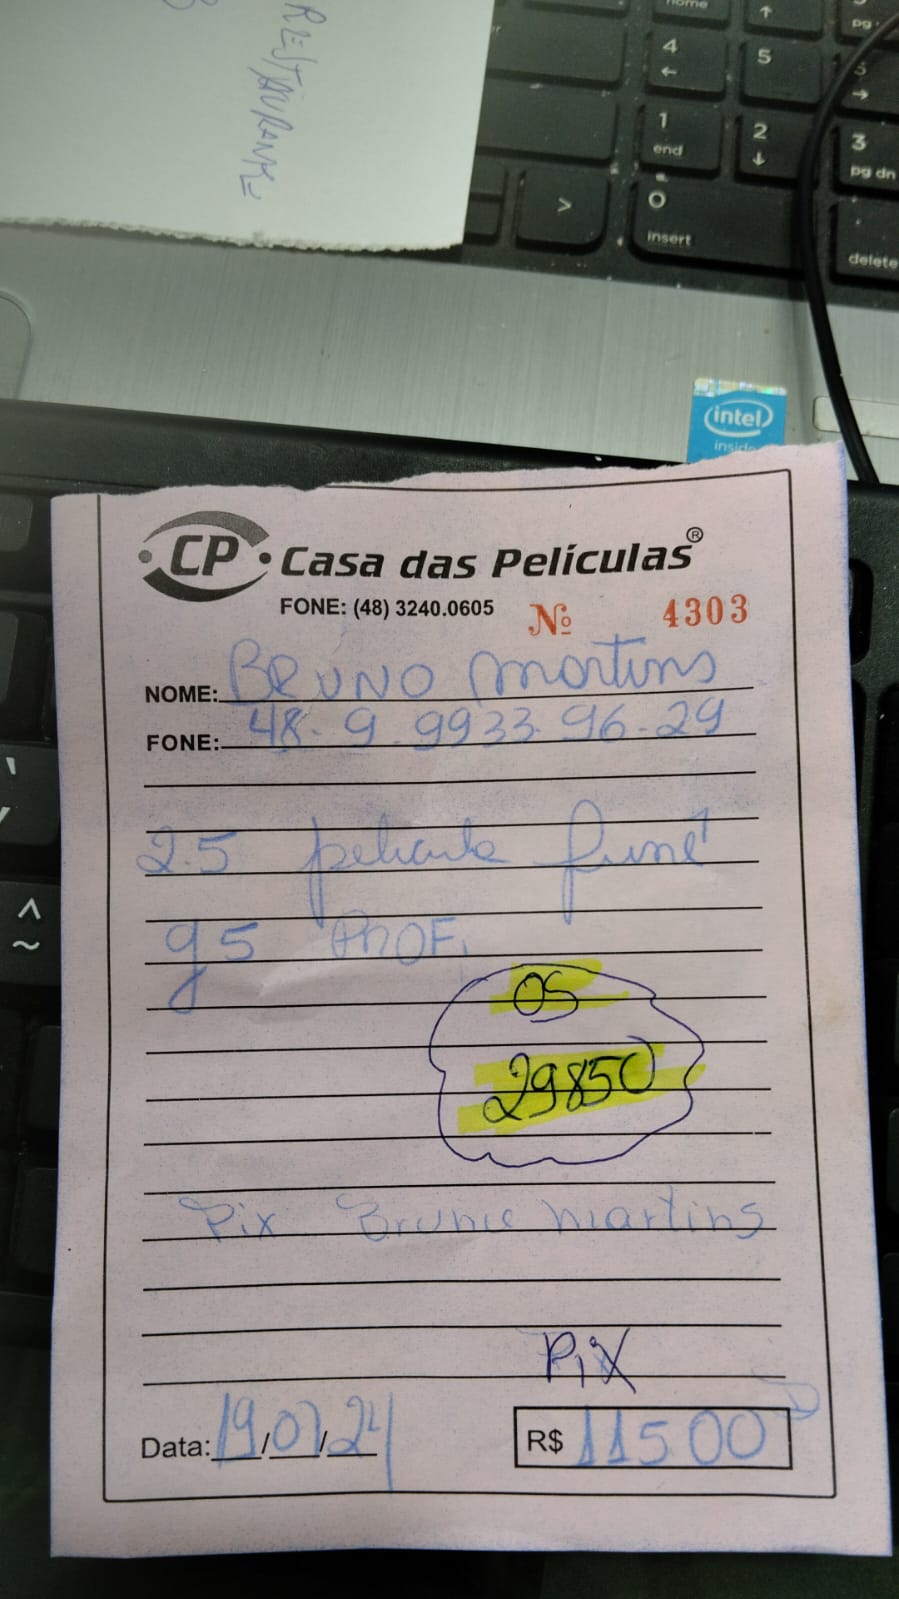 RESTAURANTE
home
pg
4
5
1
end
2
3
pg dn
>
0
insert
delete
intel
inside
CP Casa das Películas®
FONE: (48) 3240.0605 Nº 4303
NOME: Bruno Martins
FONE: 48-9.9933.96-29
2.5 pelicula fumê
g5 PROF.
OS
29850
Pix Bruno martins
Pix
Data: 19/07/24 R$ 11500